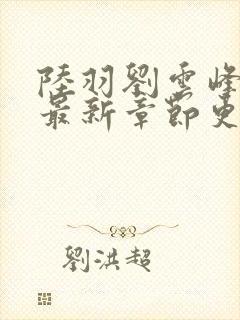 陸羽劉雲峰
最新章節更
劉洪超